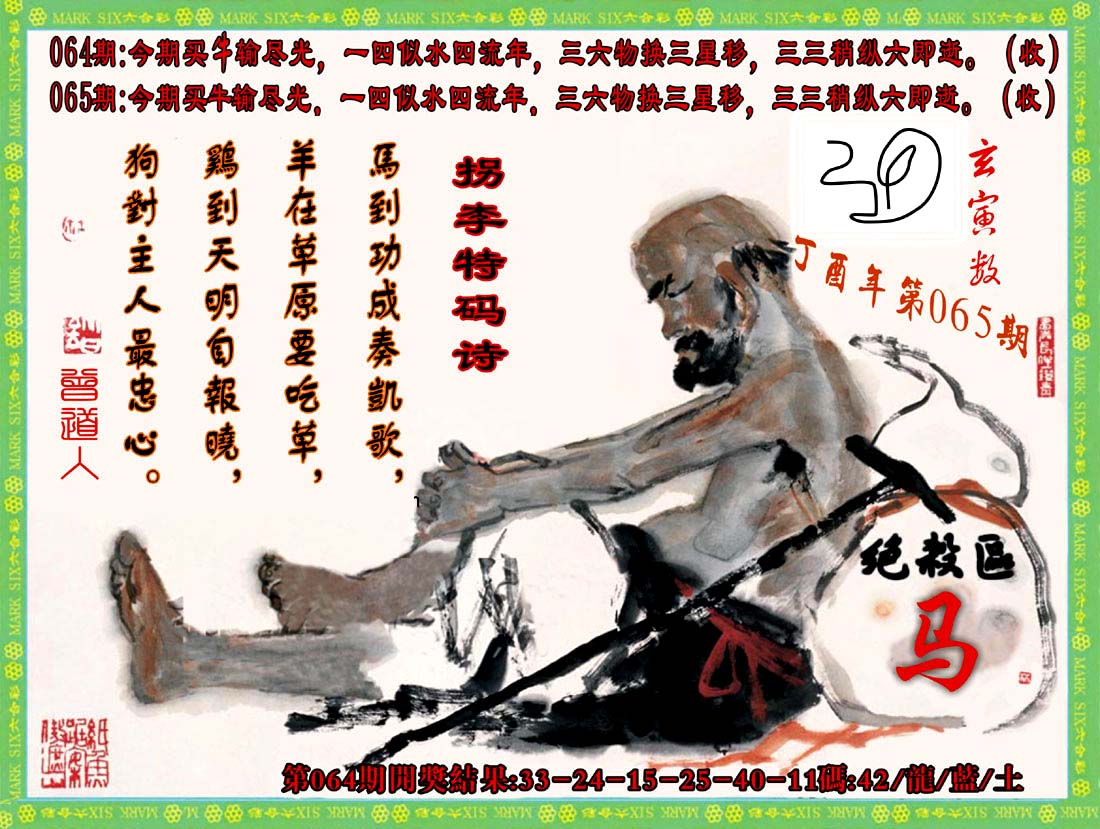 MARK SIX六合彩 MARK SIX六合彩 MARK SIX六合彩 MARK SIX六合彩 MARK SIX六合彩 MARK SIX六合彩
064期:今期买牛输尽光，一四似水四流年，三六物换三星移，三三稍纵六即逝。(收)
065期:今期买牛输尽光，一四似水四流年，三六物换三星移，三三稍纵六即逝。(收)
玄寅数
丁酉年第065期
拐李特码诗
馬到功成奏凱歌，
羊在草原要吃草，
鷄到天明自報曉，
狗對主人最忠心。
曾道人
绝殺區
马
第064期開獎結果:33-24-15-25-40-11碼:42/龍/藍/土